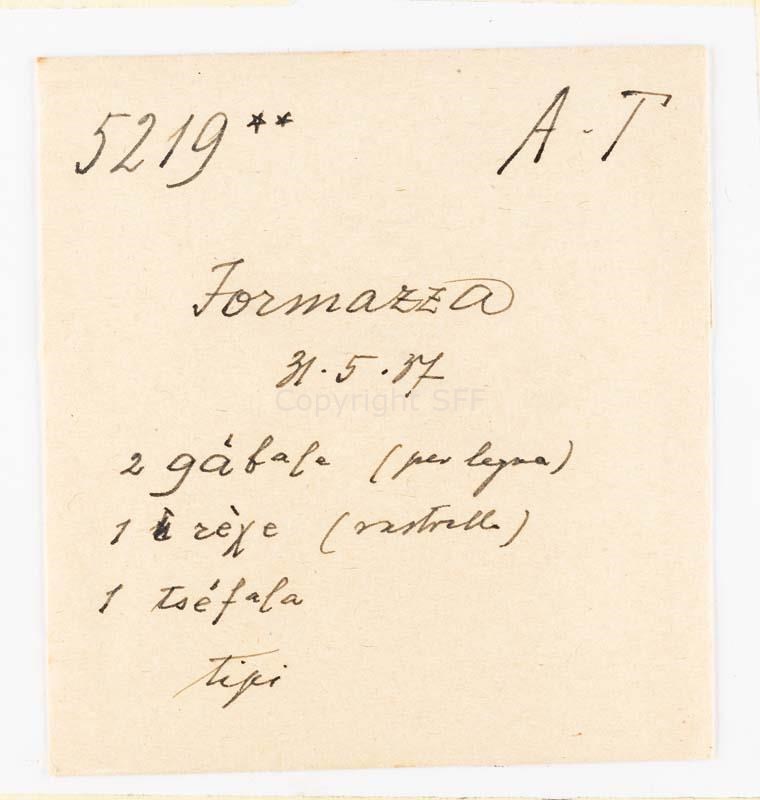 5219** A-T
Formazza
31.5.37
Copyright SFF
2 gábala (per legna)
1 rèχe (rastrello)
1 tséfala
tipi